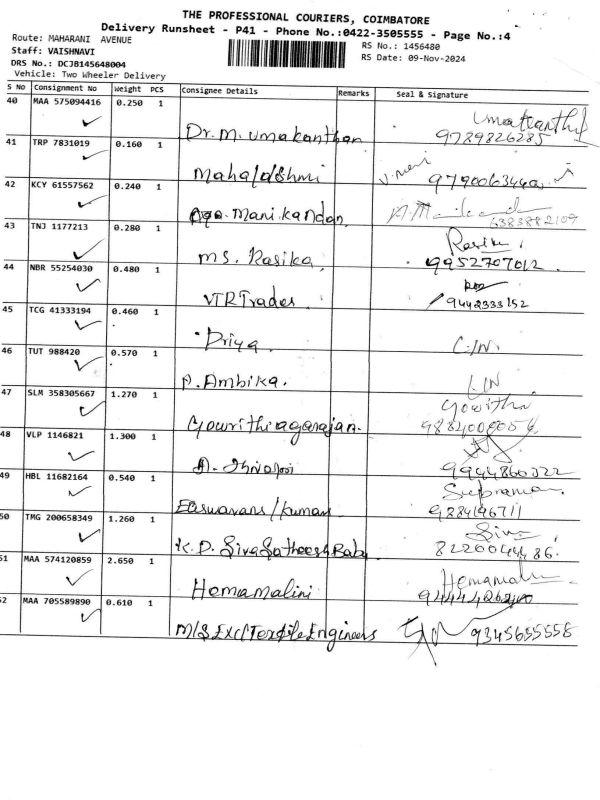 THE PROFESSIONAL COURIERS, COIMBATORE
Delivery Runsheet - P41 - Phone No.:0422-3505555 - Page No.:4
Route: MAHARANI AVENUE
RS No.: 1456480
Staff: VAISHNAVI
RS Date: 09-Nov-2024
DRS No.: DCJB145648004
Vehicle: Two Wheeler Delivery
S No Consignment No Weight PCS Consignee Details Remarks Seal & Signature
40 MAA 575094416 0.250 1
Dr. M. Umakanthan 9789826285
41 TRP 7831019 0.160 1
Mahalakshmi
42 KCY 61557562 0.240 1
Manikandan 6383882109
43 TNJ 1177213 0.280 1
Ms. Rasika, 9952707012
44 NBR 55254030 0.480 1
VTR Trades 9442333152
45 TCG 41333194 0.460 1
Priya
46 TUT 988420 0.570 1
P. Ambika.
47 SLM 358305667 1.270 1
Gowrithiagarajan.
48 VLP 1146821 1.300 1
9944860322
49 HBL 11682164 0.540 1
Easwarans/Kumar 9884196711
50 TMG 200658349 1.260 1
K. D. Siva Satheesh Babu
51 MAA 574120859 2.650 1
Hemamalini
52 MAA 705589890 0.610 1
M/S Excl Textile Engineers 9345655558